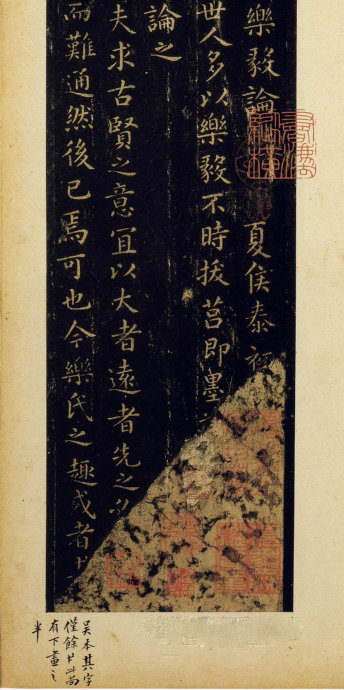 樂毅論 夏侯泰初
世人多以樂毅不時拔莒即墨
論之
夫求古賢之意宜以大者遠者先之必
而難通然後已焉可也今樂氏之趣或者
吳本其字
僅餘廿此尚
有下畫之
半